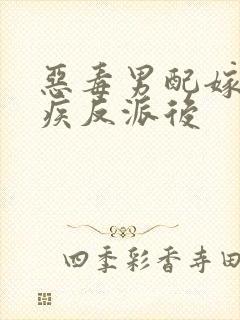 惡毒男配嫁
疾反派後
四季彩香寺田